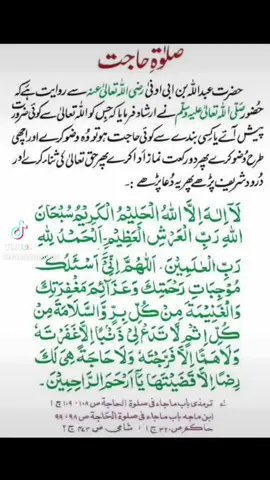 صلوٰۃ حاجت
حضرت عبداللہ بن ابی اوفیٰ رضی اللہ تعالیٰ عنہ سے روایت ہے کہ
حضور صلی اللہ تعالیٰ علیہ وسلم نے ارشاد فرمایا کہ جس کو اللہ تعالیٰ سے کوئی ضرورت
پیش آئے یا کسی بندے سے کوئی حاجت ہو تو وہ وضو کرے اور اچھی
طرح وضو کرے پھر دو رکعت نماز ادا کرے پھر حق تعالیٰ کی ثناء کرے اور
درود شریف پڑھے پھر یہ دعا پڑھے :-
لَآ اِلٰهَ اِلَّا اللّٰهُ الْحَلِيْمُ الْكَرِيْمُ سُبْحَانَ
اللّٰهِ رَبِّ الْعَرْشِ الْعَظِيْمِ اَلْحَمْدُ لِلّٰهِ
رَبِّ الْعٰلَمِيْنَ۔ اَللّٰهُمَّ اِنِّيْٓ اَسْئَلُكَ
مُوْجِبَاتِ رَحْمَتِكَ وَعَزَائِمَ مَغْفِرَتِكَ
وَالْغَنِيْمَةَ مِنْ كُلِّ بِرٍّ وَّالسَّلَامَةَ مِنْ
كُلِّ اِثْمٍ لَا تَدَعْ لِيْ ذَنْبًا اِلَّا غَفَرْتَهٗ
وَلَا هَمًّا اِلَّا فَرَّجْتَهٗ وَلَا حَاجَةً هِيَ لَكَ
رِضًا اِلَّا قَضَيْتَهَا يَآ اَرْحَمَ الرَّاحِمِيْنَ۔
ترمذی باب ماجاء فی صلوٰۃ الحاجۃ ص ۱۰۸-۱۰۹ ج ۱
ابن ماجہ باب ماجاء فی صلوٰۃ الحاجۃ ص ۹۸، ۹۹
حاکم ص ۳۲۰ ج ۱، شامی ص ۴۷۳ ج ۲